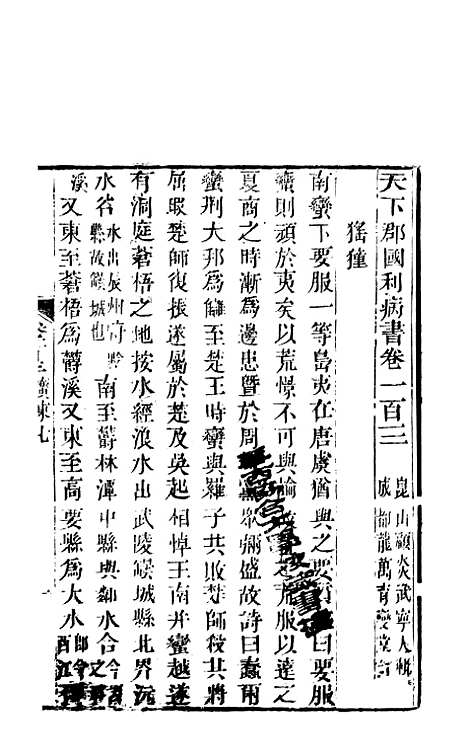 天下郡國利病書卷一百三
崑山顧炎武寧人輯
成都龍萬育燮堂訂
猺獞
南蠻下要服一等島夷在唐虞猶與之要曰要服
蠻則頑於夷矣以荒憬不可與論之荒服以遠之
夏商之時漸爲邊患暨於周衆彌盛故詩曰蠢爾
蠻荆大邦爲讎至楚王時蠻與羅子共敗楚師殺其將
屈瑕楚師復振遂屬於楚及吳起相悼王南并蠻越遂
有洞庭蒼梧之地按水經浪水出武陵鐔城縣北界沅
水谷水出辰州府黔縣故鐔城也南至鬱林潭中縣與鄰水合今
溪又東至蒼梧爲鬱溪又東至高要縣爲大水